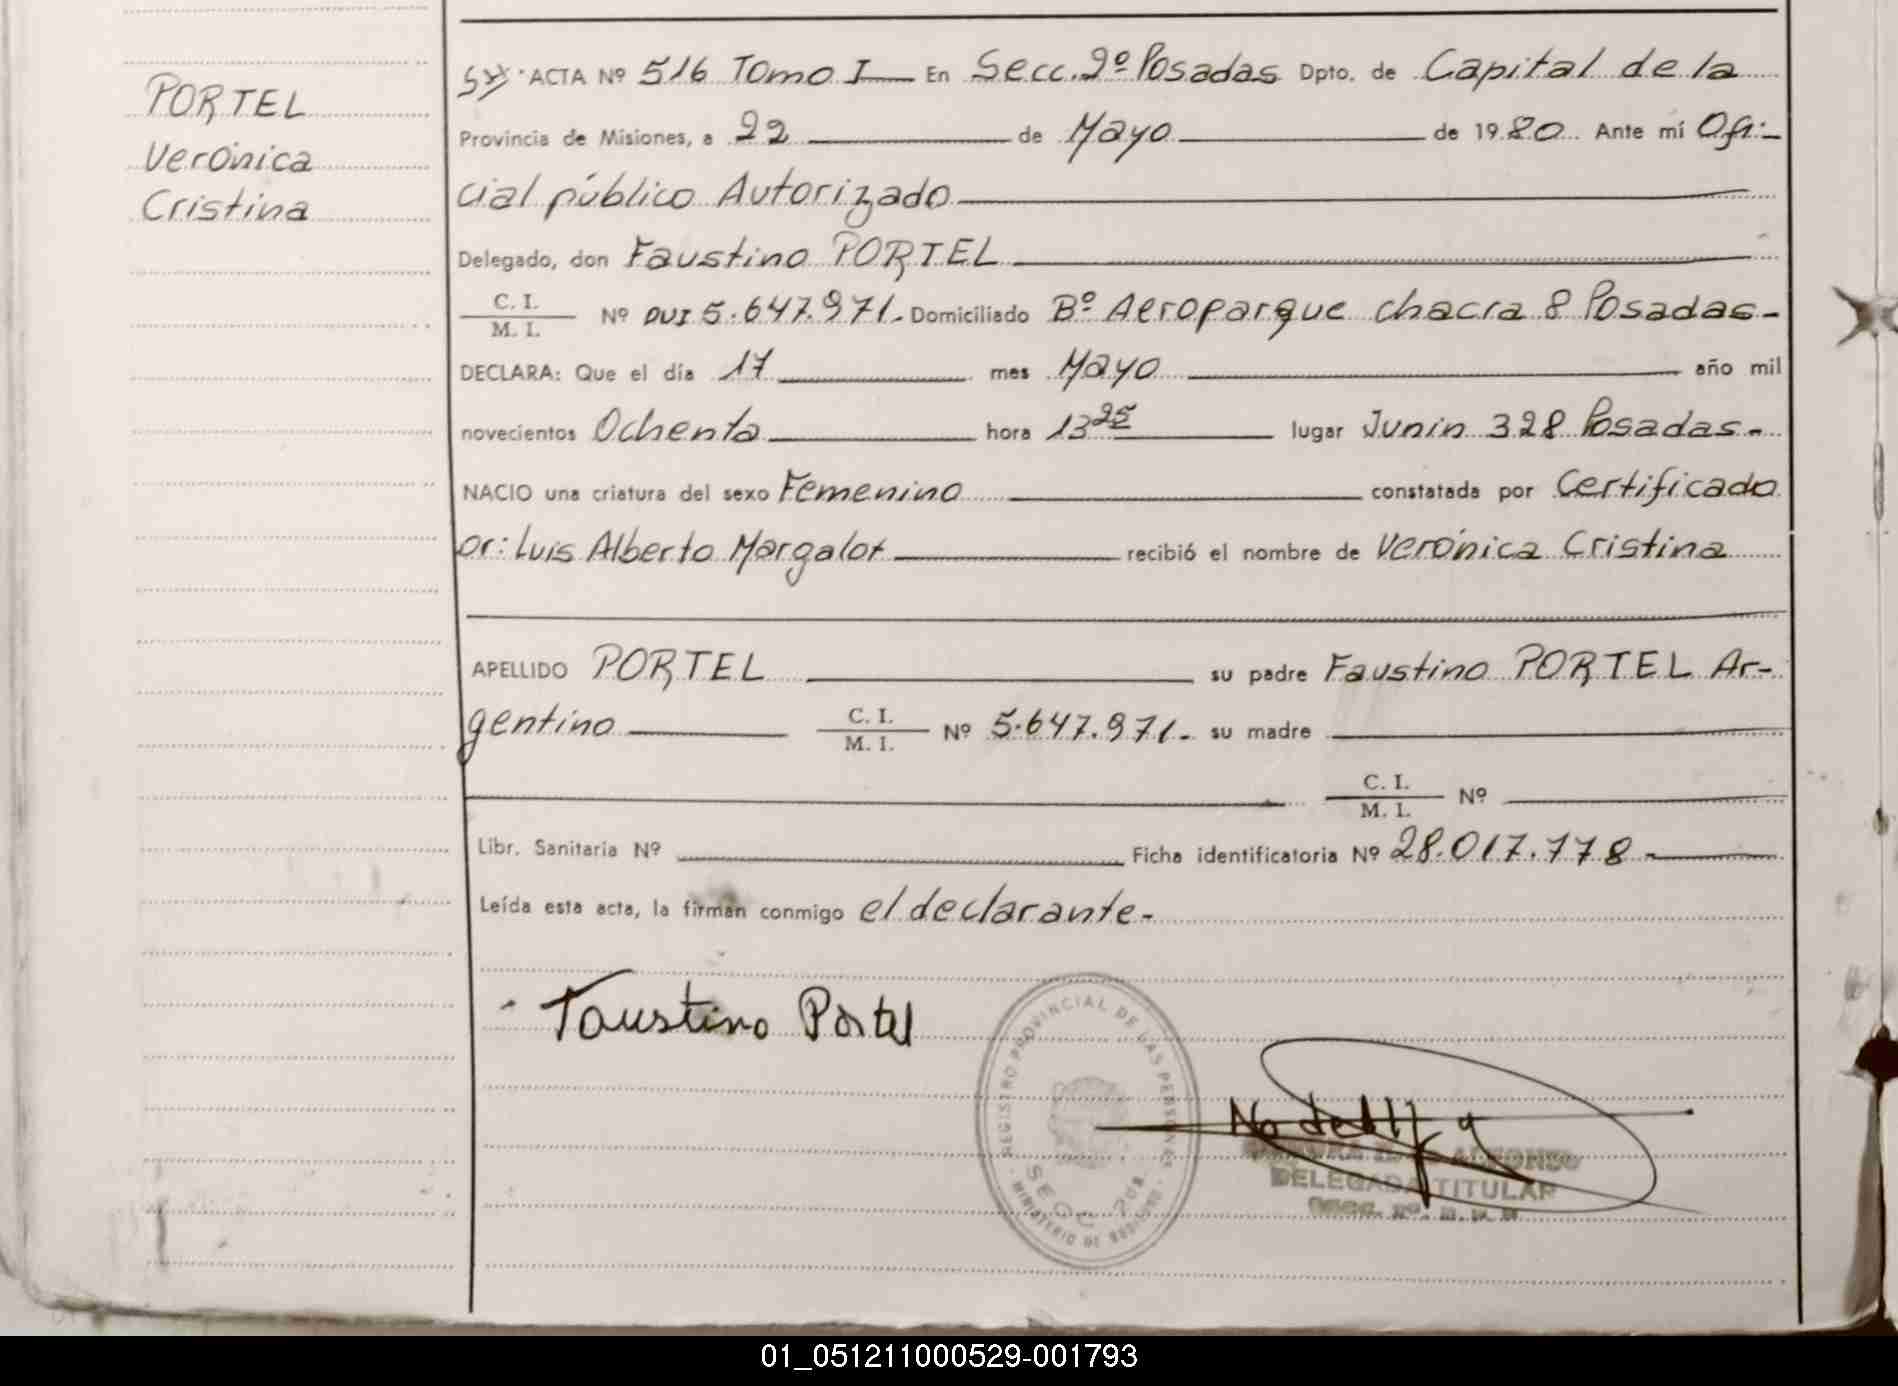 PORTEL
Verónica
Cristina
ACTA Nº 516 Tomo I En Secc. 2º Posadas Dpto. de Capital de la
Provincia de Misiones, a 22 de Mayo de 1980. Ante mí Ofi-
cial público Autorizado
Delegado, don Faustino PORTEL
C. I.
M. I. Nº DUI 5.647.971. Domiciliado Bº Aeroparque chacra 8 Posadas-
DECLARA: Que el día 17 mes Mayo año mil
novecientos Ochenta hora 13 25 lugar Junin 328 Posadas.-
NACIO una criatura del sexo Femenino constatada por Certificado
Dr: Luis Alberto Margalot recibió el nombre de Verónica Cristina
APELLIDO PORTEL su padre Faustino PORTEL Ar-
gentino C. I.
M. I. Nº 5.647.971.- su madre
C. I.
M. I. Nº
Libr. Sanitaria Nº Ficha identificatoria Nº 28.017.178-
Leída esta acta, la firman conmigo el declarante-
Faustino Portel
REGISTRO PROVINCIAL DE LAS PERSONAS
SECC 2da
MINISTERIO DE GOBIERNO
ALFONSO
DELEGADA TITULAR